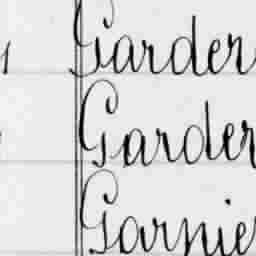 Garder
Garder
Garnie